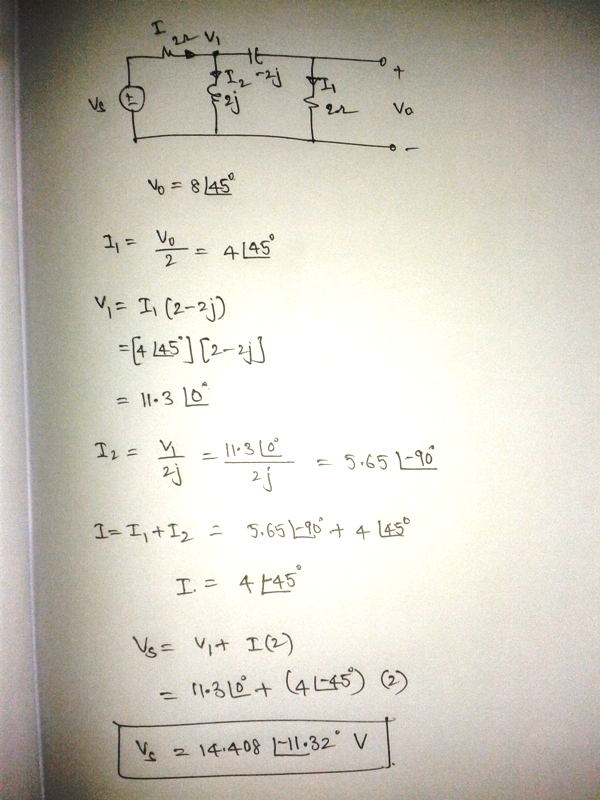 I 2Ω V₁
I₂ -2j I₁ +
Vs ± 2j 2Ω Vo
-
Vo = 8∠45°
I₁ = Vo/2 = 4∠45°
V₁ = I₁ (2-2j)
= [4∠45°] [2-2j]
= 11.3 ∠0°
I₂ = V₁/2j = 11.3∠0°/2j = 5.65 ∠-90°
I = I₁ + I₂ = 5.65∠-90° + 4∠45°
I. = 4∠-45°
Vs = V₁ + I(2)
= 11.3∠0° + (4∠-45°) (2)
Vs = 14.408 ∠-11.32° V